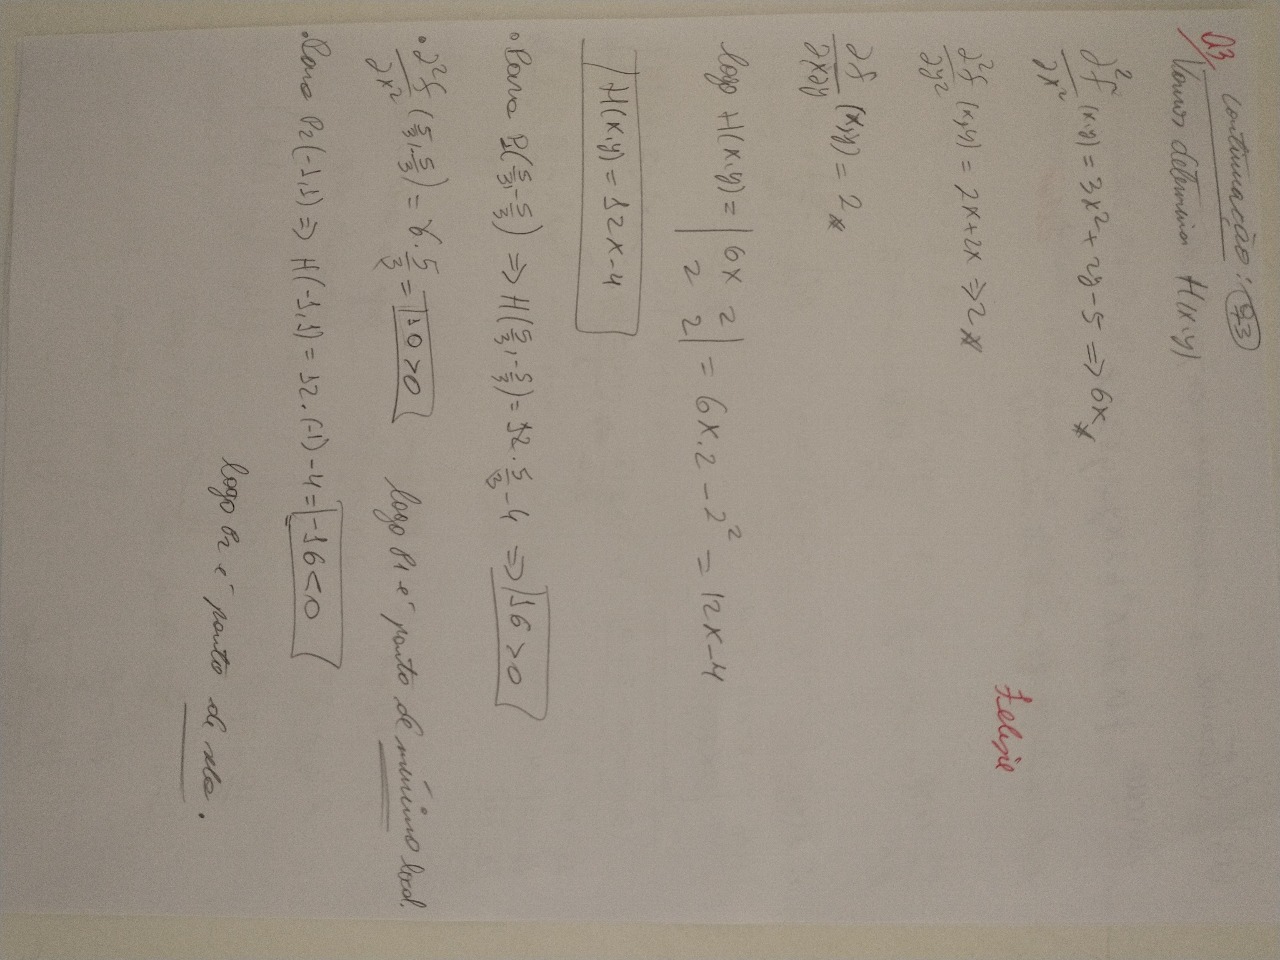 Q3 Continuação: Q3
Vamos determina H(x,y)
∂²f/∂x² (x,y) = 3x² + 2y - 5 => 6x
∂²f/∂y² (x,y) = 2x + 2x => 2
∂f/∂x∂y (x,y) = 2
Felipe
logo H(x,y) = | 6x 2 | = 6x.2 - 2² = 12x - 4
| 2 2 |
H(x,y) = 12x - 4
• Para P1(5/3, -5/3) => H(5/3, -5/3) = 12 . 5/3 - 4 => 16 > 0
• ∂²f/∂x² (5/3, -5/3) = 6 . 5/3 = 10 > 0 logo P1 é ponto de mínimo local.
• Para P2(-1,1) => H(-1,1) = 12.(-1) - 4 = -16 < 0
logo P2 é ponto de sela.